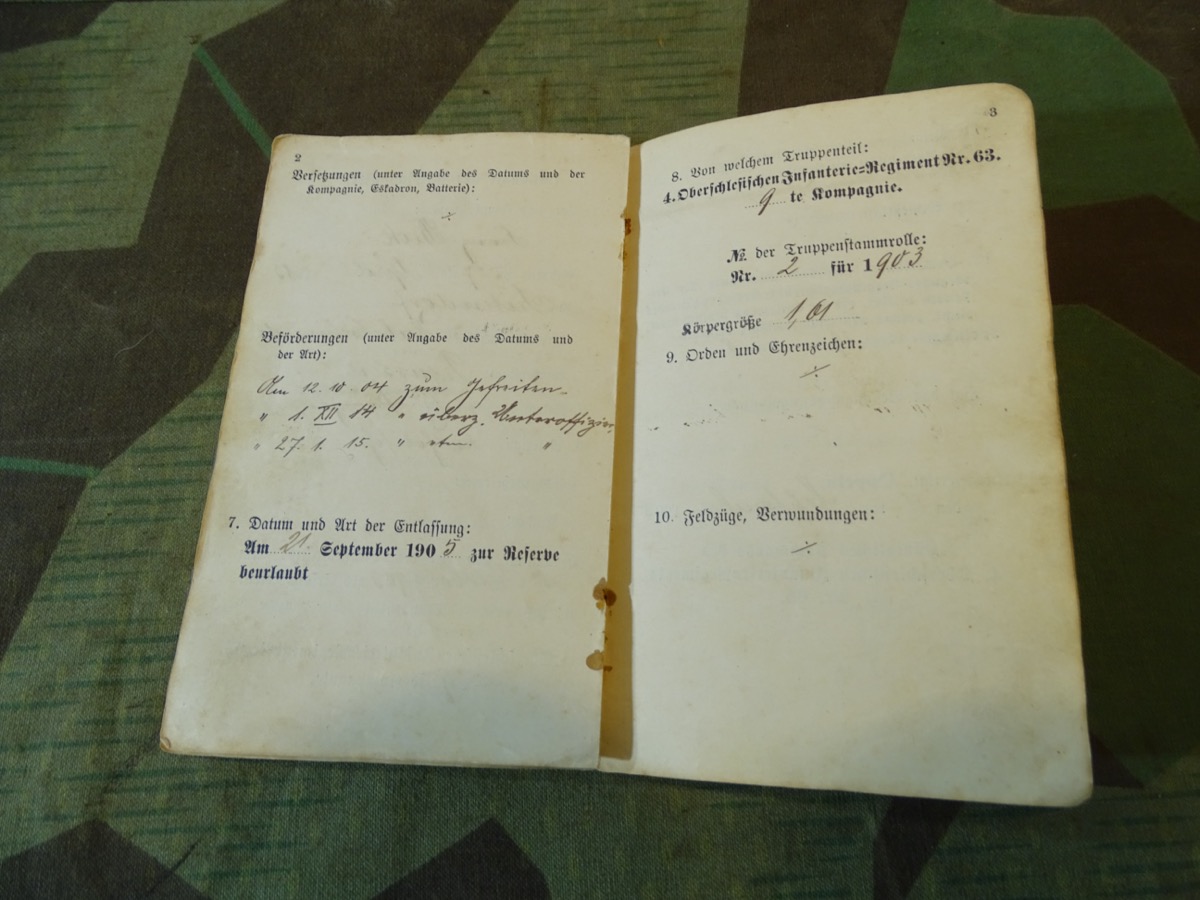 2
Versetzungen (unter Angabe des Datums und der
Kompagnie, Eskadron, Batterie):
÷
Beförderungen (unter Angabe des Datums und
der Art):
Am 12. 10. 04 zum Gefreiten
" 1. XII 14 " überz. Unteroffizier
" 27. 1. 15. " etm. "
7. Datum und Art der Entlassung:
Am 21. September 1905 zur Reserve
beurlaubt
3
8. Von welchem Truppenteil:
4. Oberschlesischen Infanterie=Regiment Nr. 63.
9 te Kompagnie.
№ der Truppenstammrolle:
Nr. 2 für 1903
Körpergröße 1,61
9. Orden und Ehrenzeichen:
÷
10. Feldzüge, Verwundungen:
÷